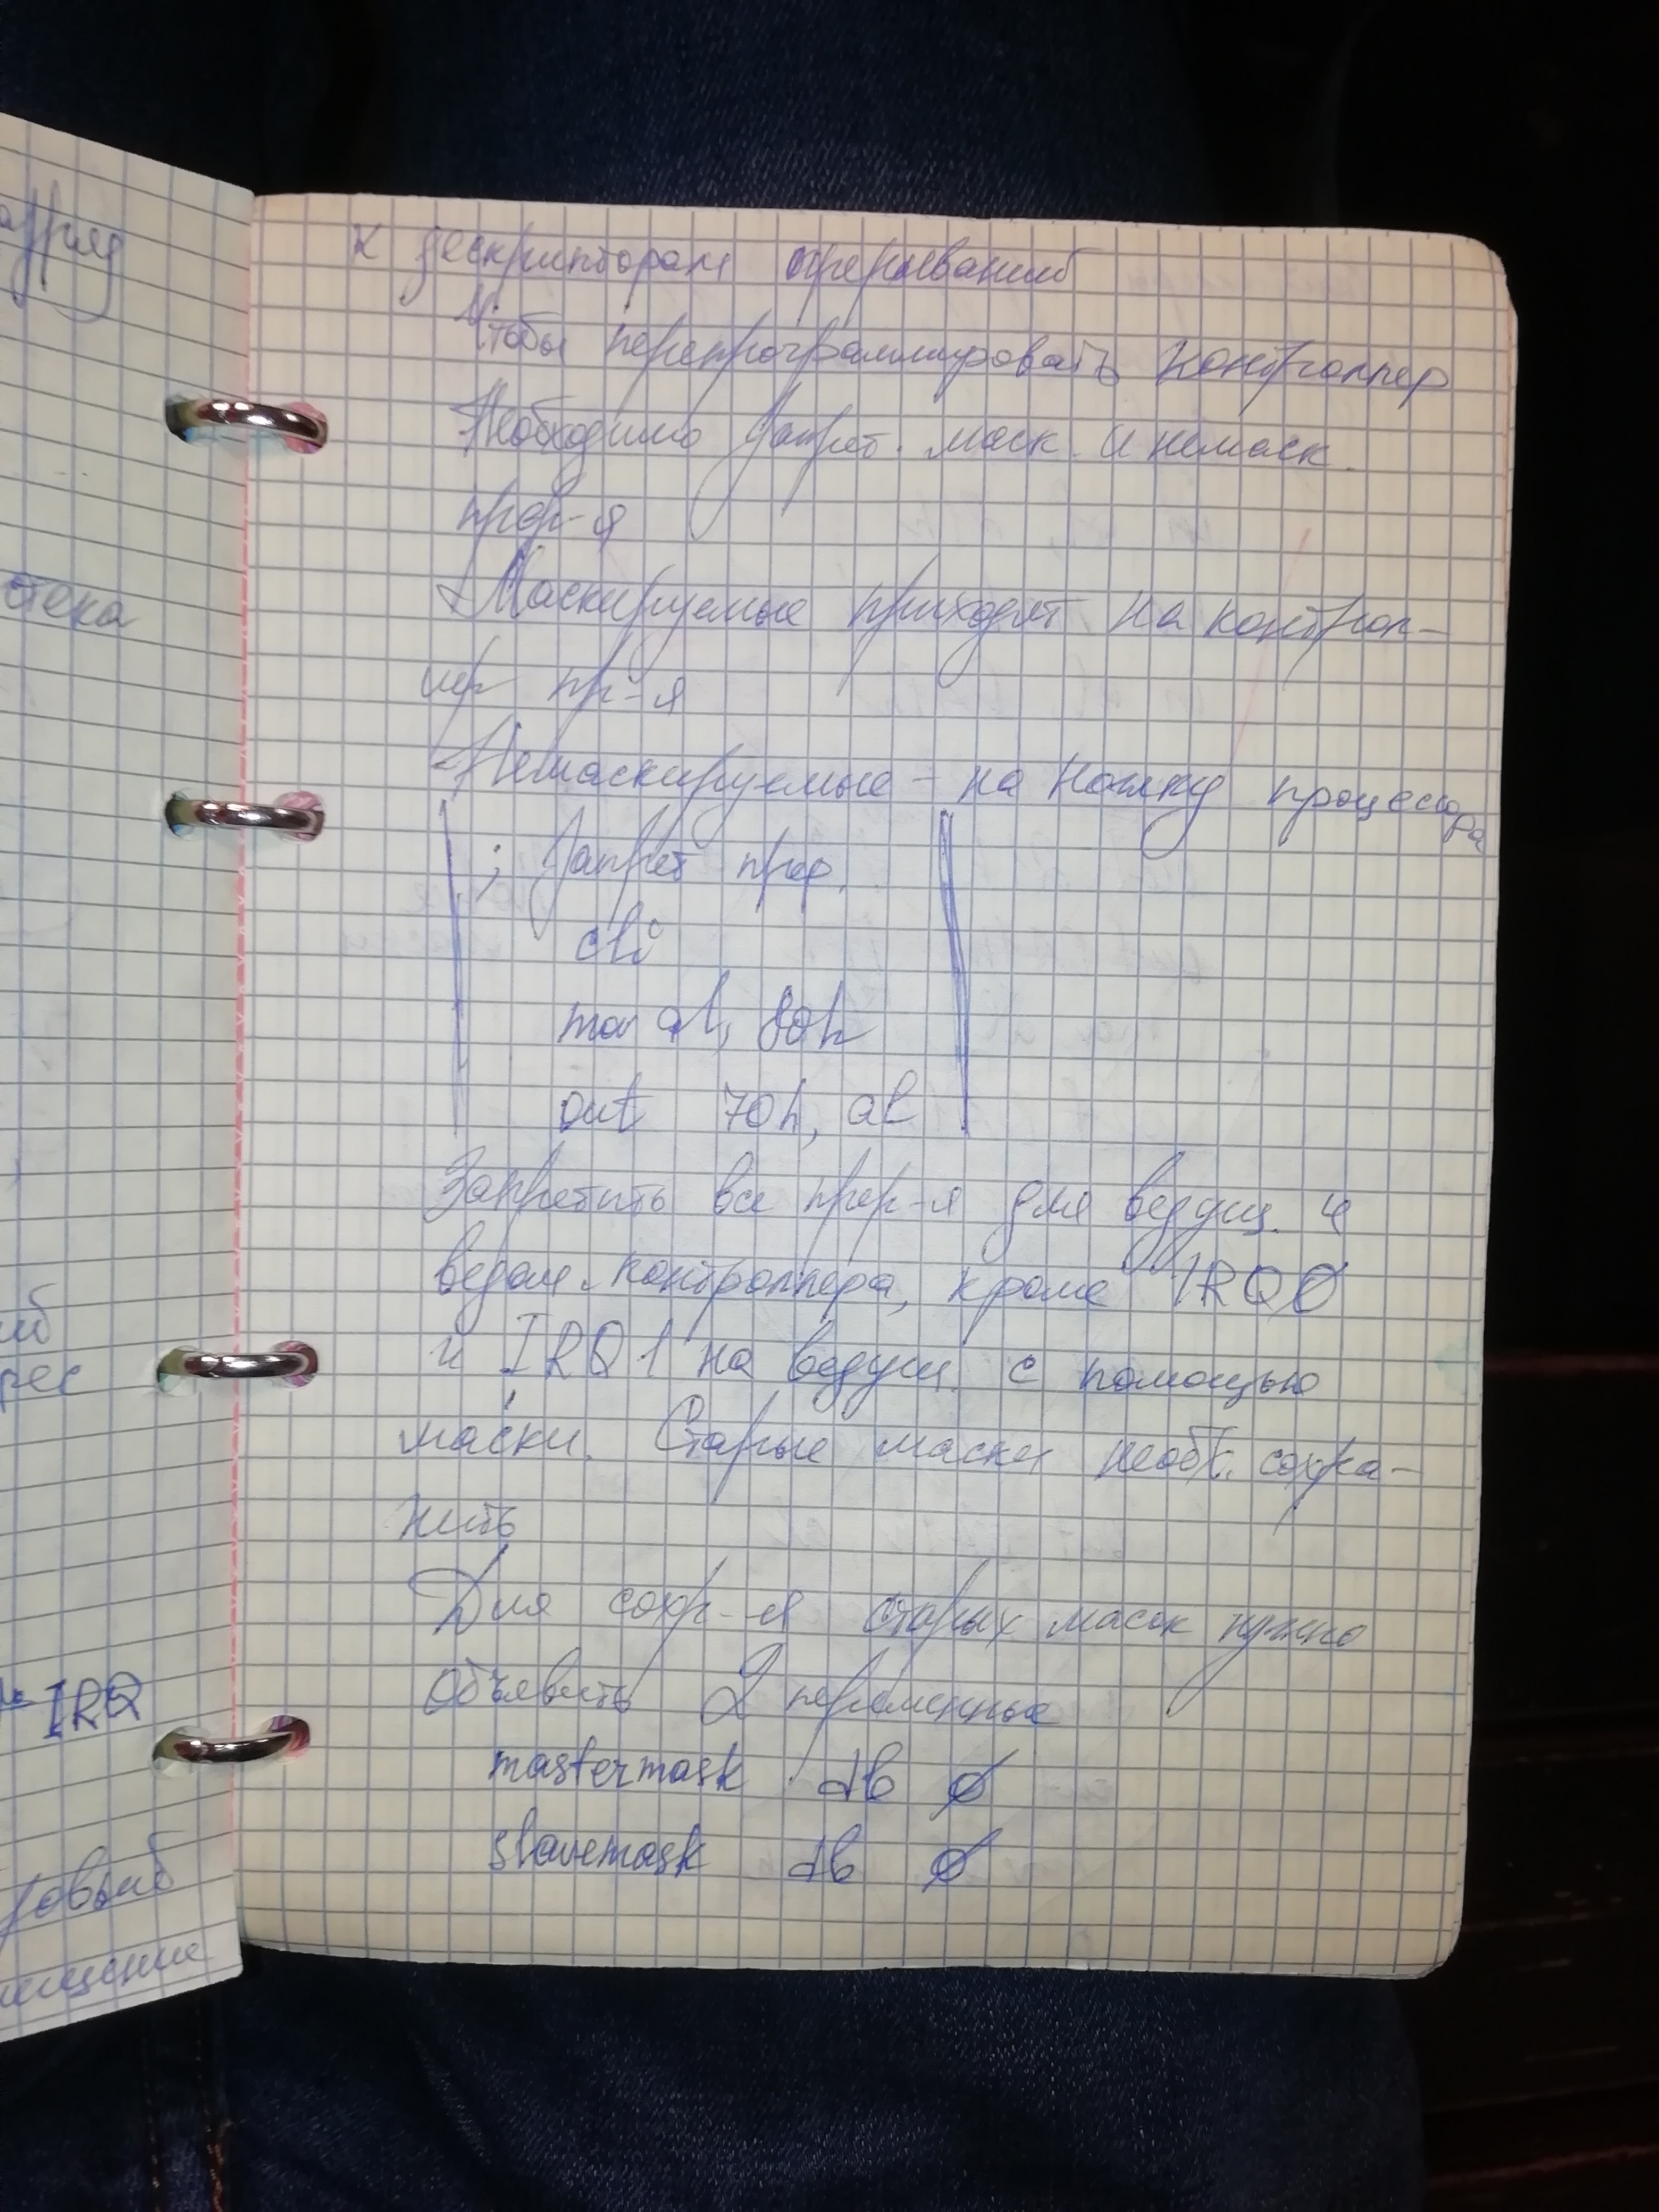 к дескрипторам прерываний
Чтобы перепрограммировать контроллер
Необходимо запрет. маск. и немаск.
прер-я
Маскируемые приходят на контрол-
лер пр-я
Немаскируемые - на ножку процессора
; Запрет прер.
cli
mov al, 80h
out 70h, al
Запретить все прер-я для ведущ. и
ведом. контроллера, кроме IRQ0
и IRQ1 на ведущ. с помощью
маски. Старые маски необх. сохра-
нить
Для сохр-я старых масок нужно
объявить 2 переменные
mastermask db 0
slavemask db 0
стека
рес
IRQ
мещение